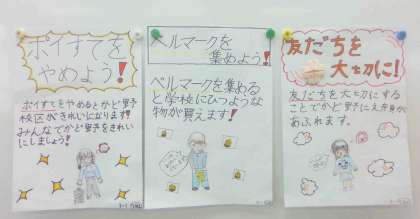 ポイすてを
やめよう!
ポイすてをやめるとかど野
校区がきれいになります!
みんなでかど野をきれい
にしましょう!
ベルマークを
集めよう!
ベルマークを集める
と学校にひつような
物が買えます!
友だちを
大切に!
友だちを大切にする
ことでかど野にえ身が
あふれます。